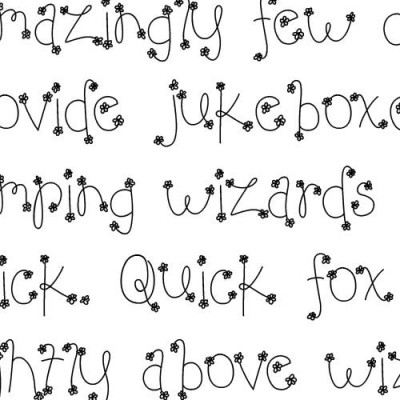 mazingly few d
ovide jukeboxe
mping wizards
ick Quick fox
ghtly above wiz